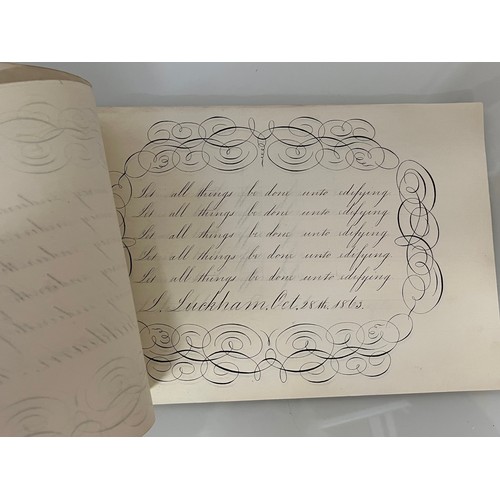 Let all things be done unto edifying
Let all things be done unto edifying
Let all things be done unto edifying
Let all things be done unto edifying
Let all things be done unto edifying
L. Luckham. Oct. 28th, 1863.